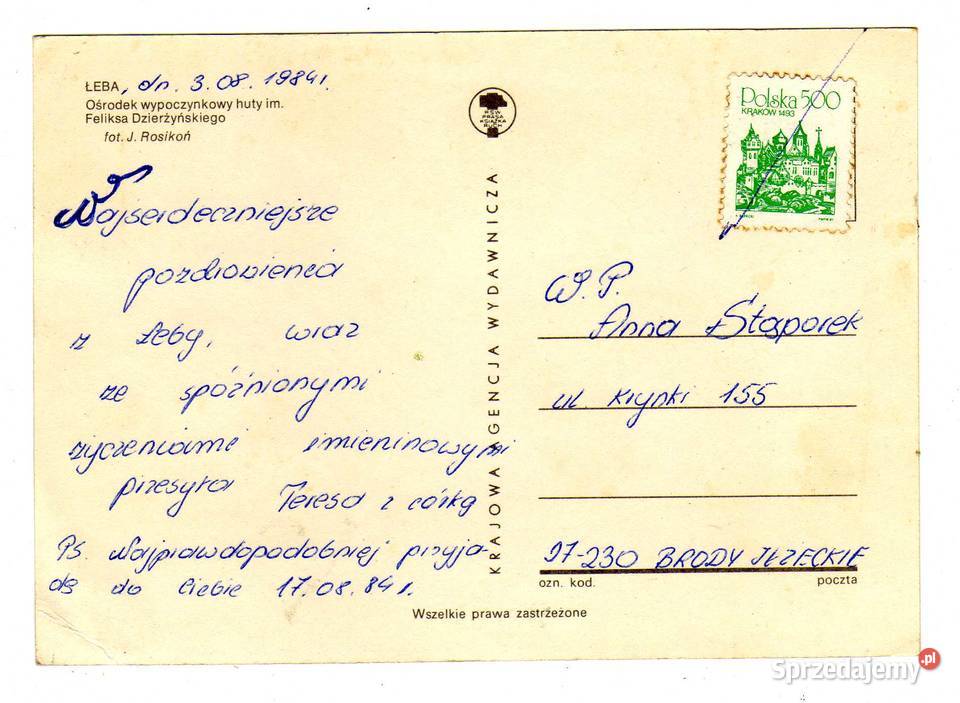 ŁEBA, dn. 3.08.1984r.
Ośrodek wypoczynkowy huty im.
Feliksa Dzierżyńskiego
fot. J. Rosikoń
Najserdeczniejsze
pozdrowienia
z Łeby, wraz
ze spóźnionymi
życzeniami imieninowymi
przesyła Teresa z córką
PS. Najprawdopodobniej przyja-
dę do Ciebie 17.08.84r.
Wszelkie prawa zastrzeżone
RSW
PRASA
KSIĄŻKA
RUCH
KRAJOWA AGENCJA WYDAWNICZA
Polska 500
KRAKÓW 1493
W.P.
Anna Stąporek
ul. Krynki 155
27-230 BRODY IŁŻECKIE
ozn. kod. poczta
Sprzedajemy.pl